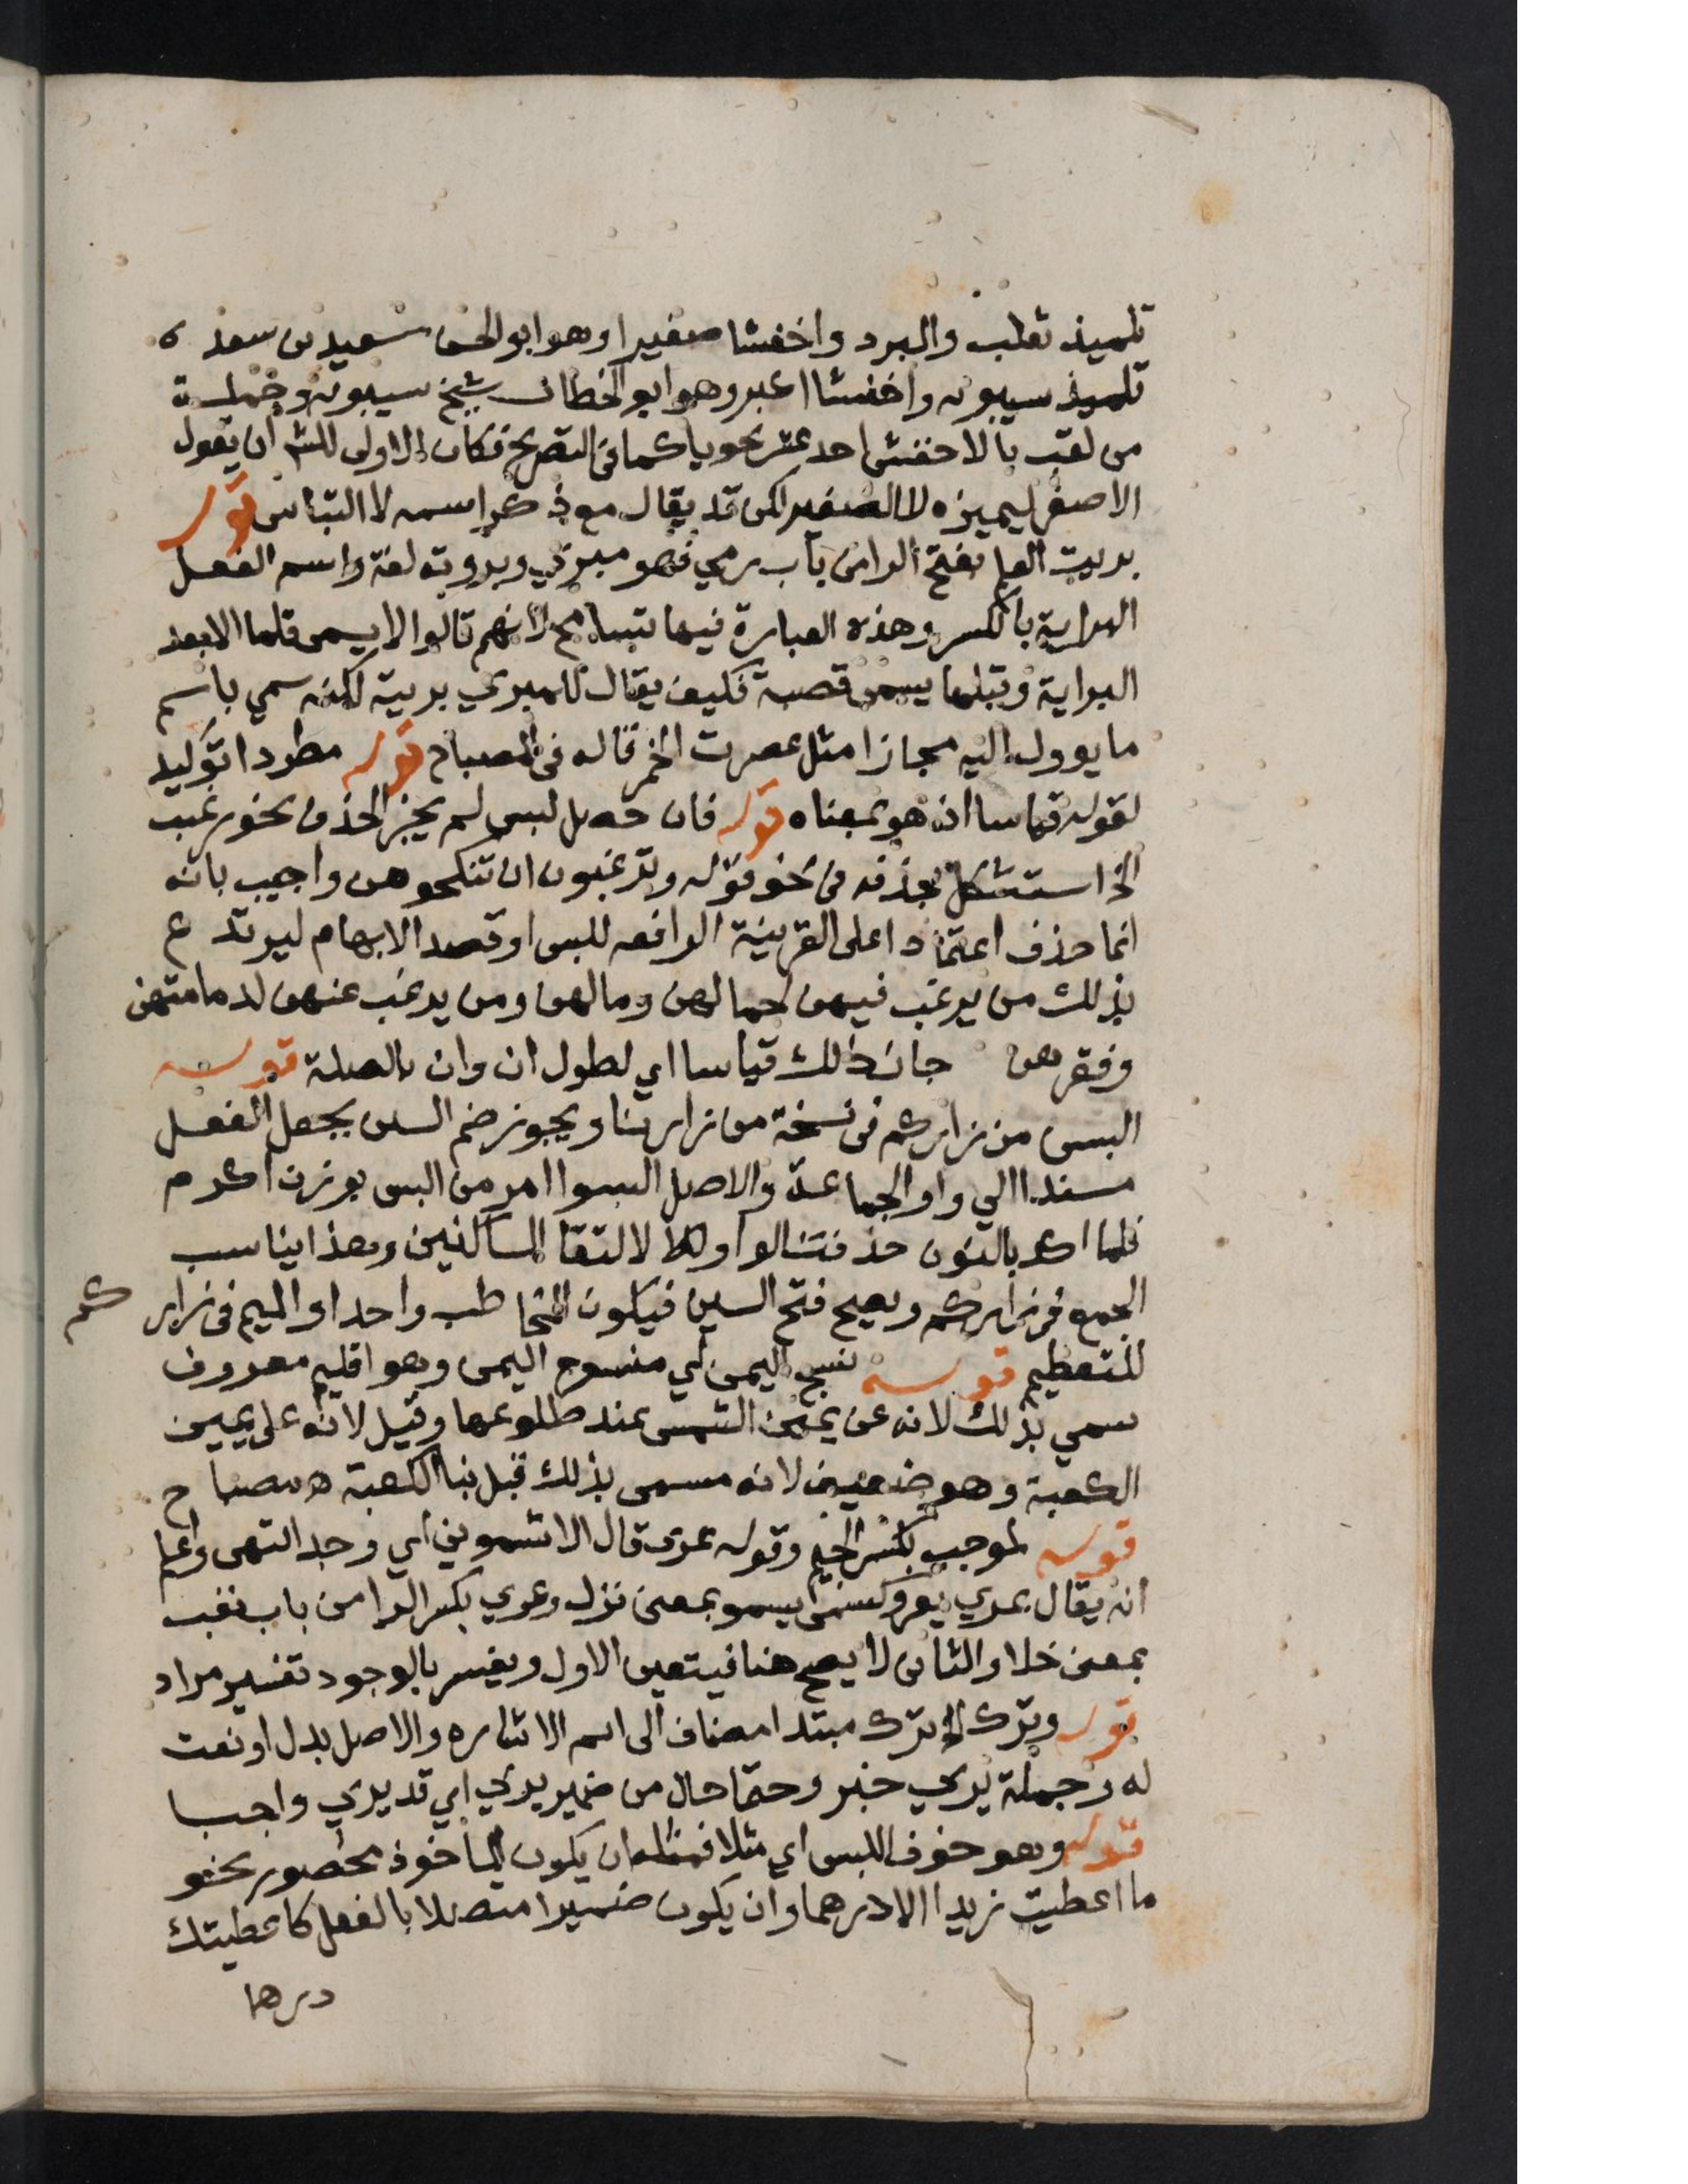 تلميذ ثعلب والمبرد واخفشا صغيرا وهو ابو الحسن سعيد بن سعد ه
تلميذ سيبويه واخفشا اكبر وهو ابو الخطاب شيخ سيبويه وجملة
من لقب بالاخفش احد عشر نحويا كما في التصريح فكان الاولى للش ان يقول
الاصغر ليميزه لا الصغير لكن قد يقال مع ذكر اسمه لا التباس قوله
بريت القلم بفتح الرا من باب رمي فهو مبري وبروته لغة واسم الفعل
البراية بالكسر وهذه العبارة فيها تسامح لانهم قالوا لا يسمى قلما الا بعد
البراية وقبلها يسمى قصبة فكيف يقال للمبري بريته لكنه سمي باسم
ما يوول اليه مجازا مثل عصرت الخمر قاله في المصباح قوله مطردا توكيد
لقوله قياسا اذ هو بمعناه قوله فان حصل لبس لم يجز الحذف نحو رغبت
الخ استشكل بحذفه في نحو قوله وترغبون ان تنكحوهن واجيب بانه
انما حذف اعتمادا على القرينة الرافعه للبس او قصد الابهام ليرتدع
بذلك من يرغب فيهن لجمالهن ومالهن ومن يرغب عنهن لدمامتهن
وفقرهن جاز ذلك قياسا اي لطول ان وان بالصلة قوله
البسن من زاركم في نسخة من زارنا ويجوز ضم السين بجعل الفعل
مسندا الي واو الجماعة والاصل البسوا امر من البس بوزن اكرم
فلما اكد بالنون حذفت الواو لالتقا الساكنين وهذا يناسب
الجمع في زاركم ويصح فتح السين فيكون المخاطب واحدا والميم في زاركم
للتعظيم قوله نسج اليمن اي منسوج اليمن وهو اقليم معروف
سمي بذلك لانه عن يمين الشمس عند طلوعها وقيل لانه على يمين
الكعبة وهو ضعيف لانه مسمى بذلك قبل بنا الكعبة اه مصباح
قوله لموجب بكسر الجيم وقوله عرى قال الاشموني اي وجد انتهى واعلم
انه يقال عري يعرو كسمى يسمو بمعنى نزل وعري بكسر الرا من باب تعب
بمعنى خلا والثاني لا يصح هنا فيتعين الاول ويفسر بالوجود تفسير مراد
قوله وترك الخ ترك مبتدا مضاف الى اسم الاشاره والاصل بدل او نعت
له وجملة يري خبر وحتما حال من ضمير يري اي قد يري واجبا
قوله وهو خوف اللبس اي مثلا فمثله ان يكون الماخوذ محصور نحو
ما اعطيت زيدا الا درهما وان يكون ضميرا متصلا بالفعل كاعطيتك
درهما